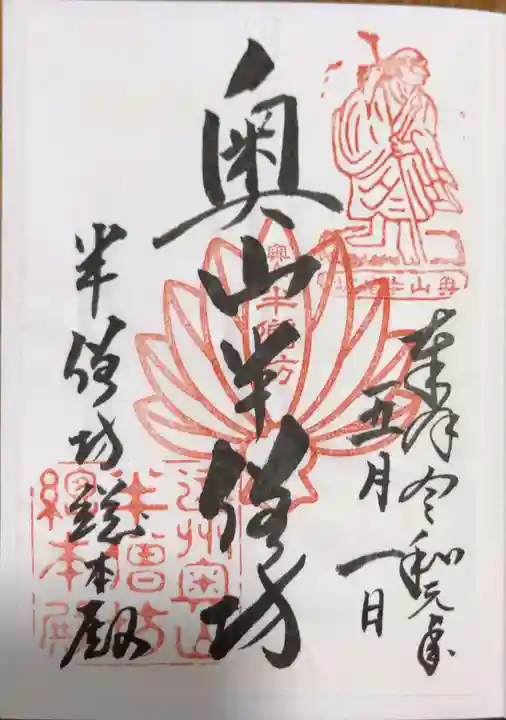 奉拝令和元年
五月一日
奥山半僧坊
半僧坊総本殿
奥山半僧坊
遠州奥山
半僧坊
総本殿